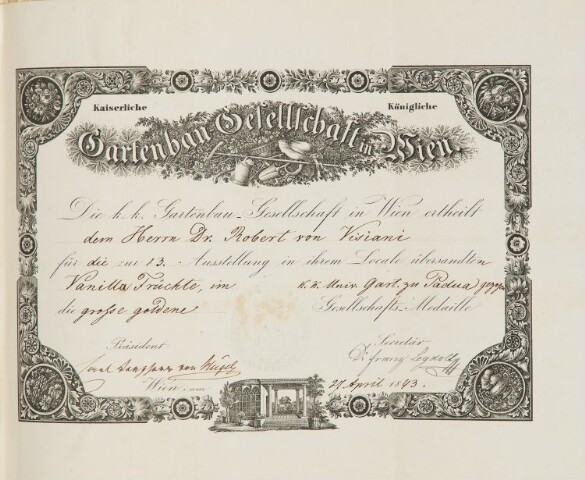 Kaiserliche Königliche
Gartenbau Gesellschaft in Wien.
Die k. k. Gartenbau-Gesellschaft in Wien ertheilt
dem Herrn Dr. Robert von Visiani
für die zur 13. Ausstellung in ihrem Locale übersandten
Vanilla Früchte, im k. k. Univ. Gart. zu Padua
die grosse goldene Gesellschafts-Medaille
Präsident Secretär
von Hügel Dr. Franz
Wien am 27 April 1843.